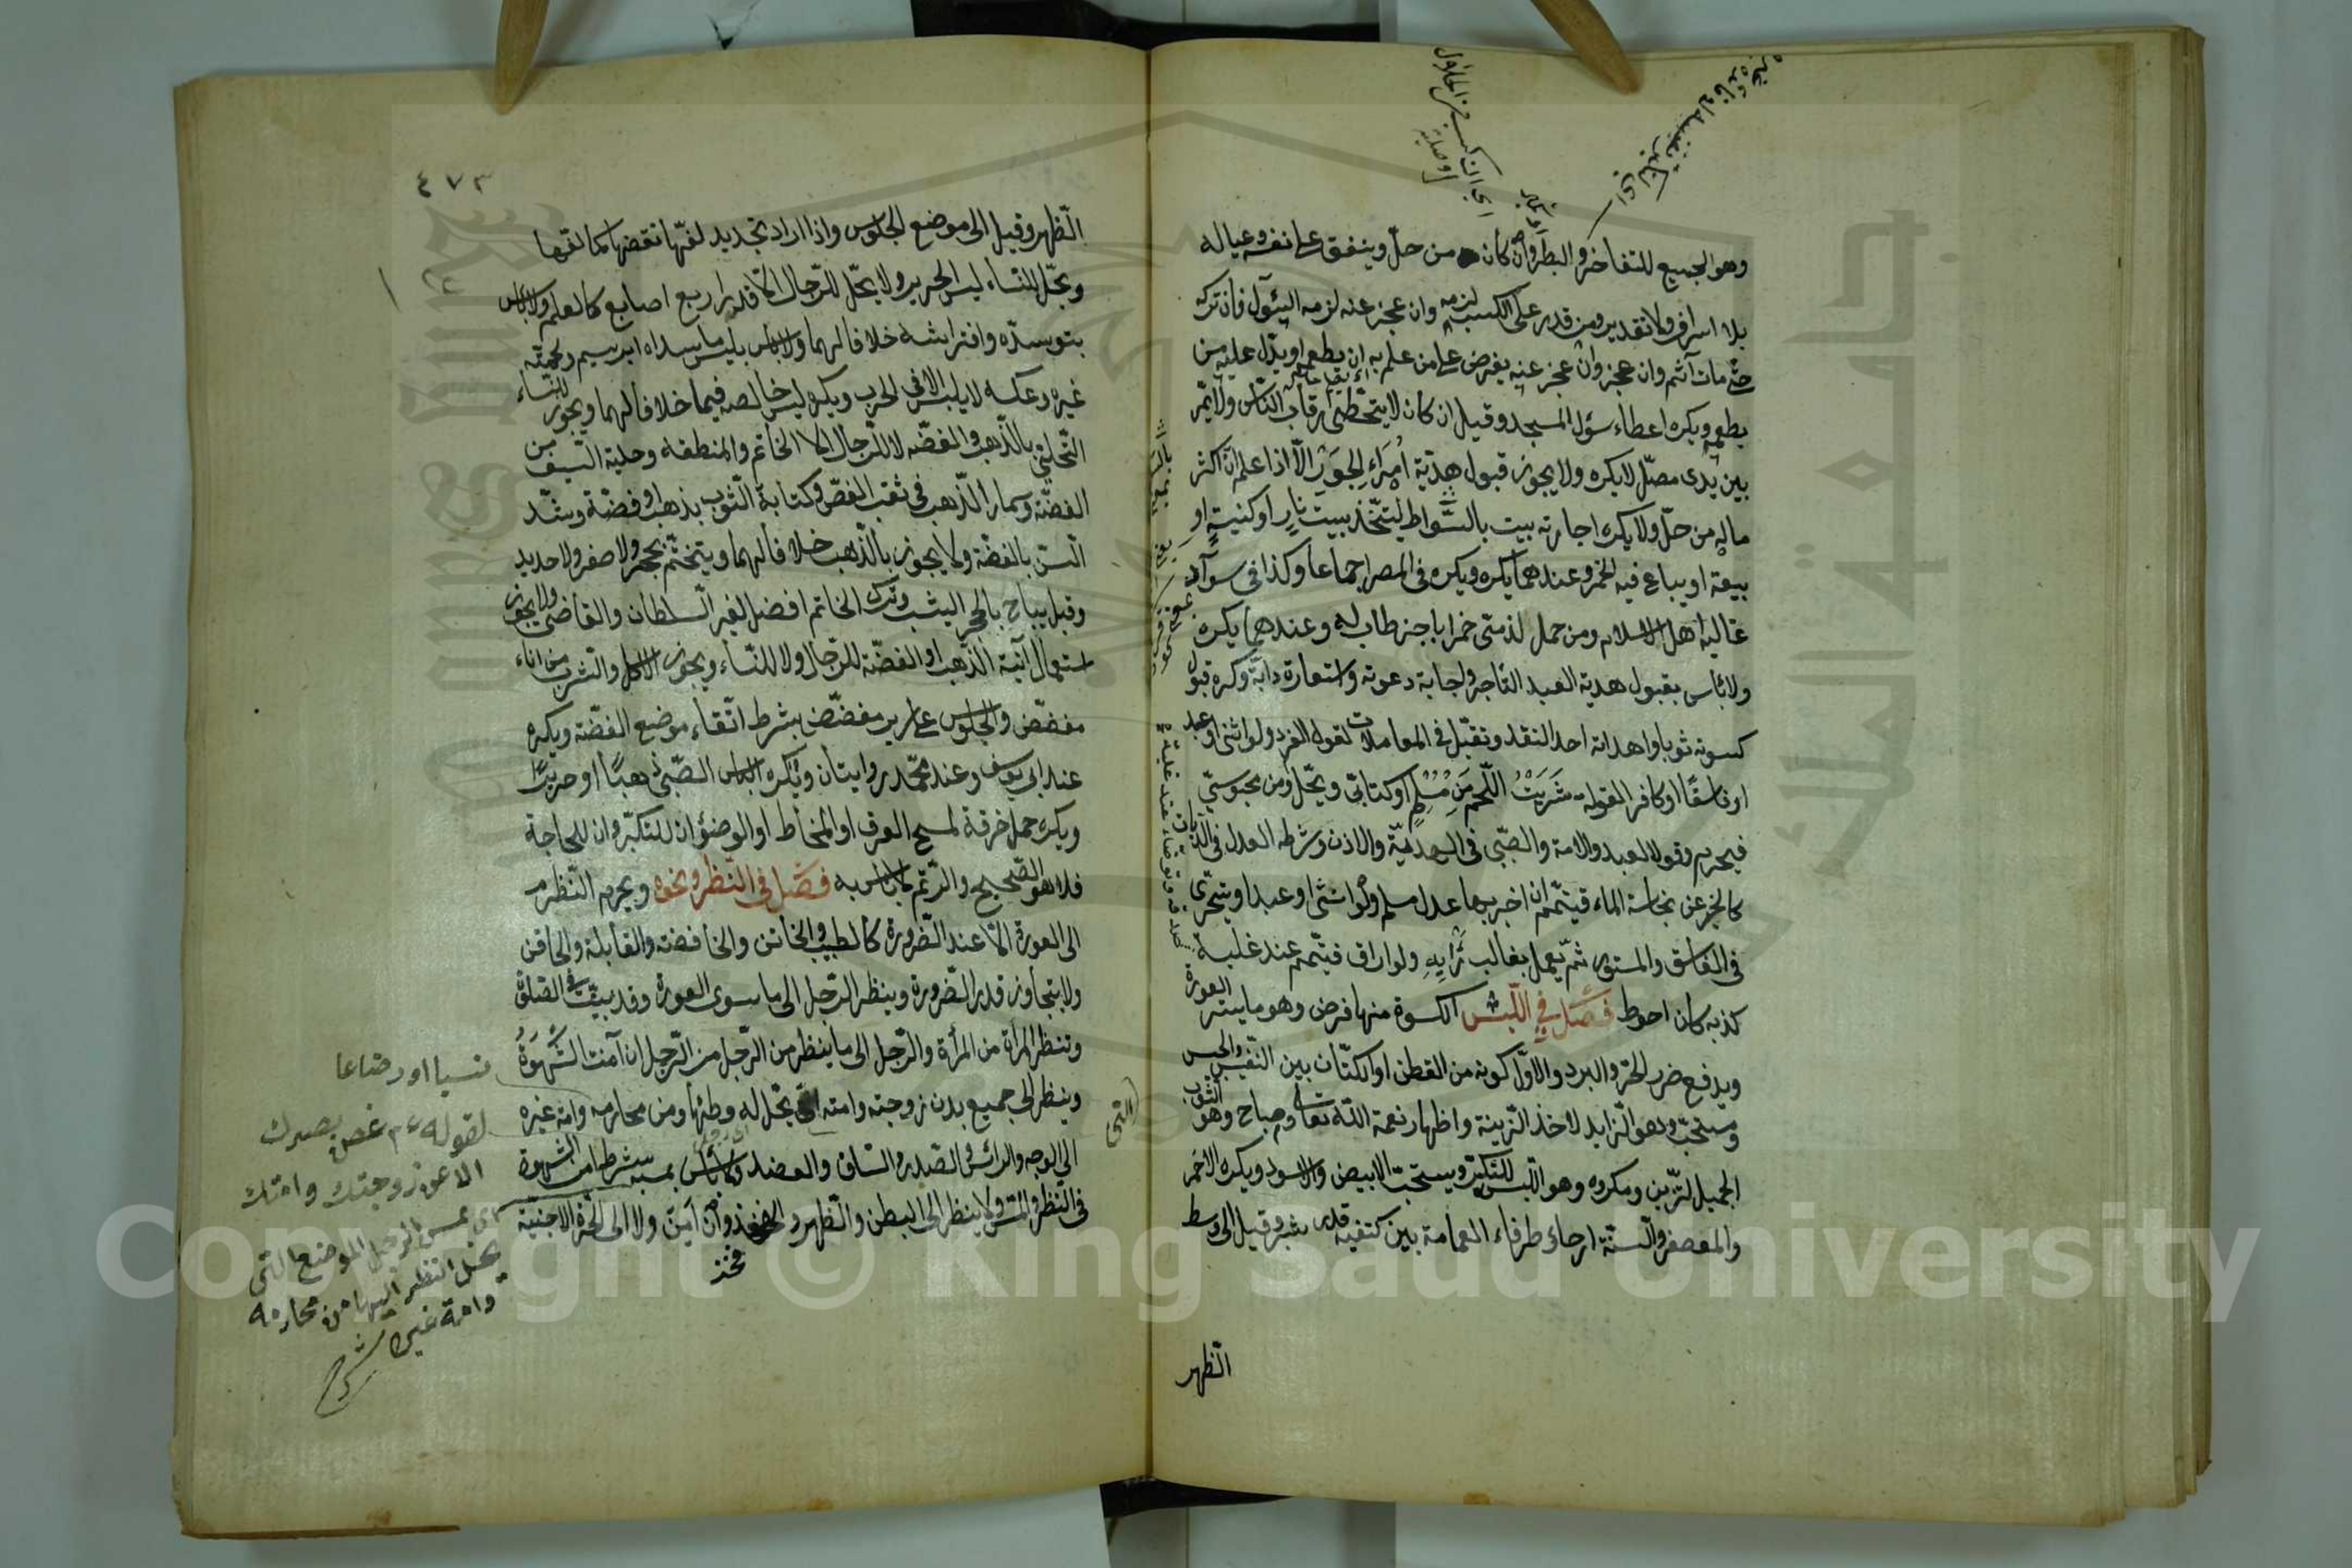 وهو الجمع للتفاخر والبطر وان كان من حل وينفق على نفسه وعياله
بلا اسراف ولا تقتير ومن قدر على الكسب لزمه وان عجز عنه لزمه السؤال فان تركه
حتى مات آثم وان عجز عنه يفرض على من علم به ان يطعمه او يدل عليه من
يطعمه ويكره اعطاء سؤال المسجد وقيل ان كان لا يتخطى رقاب الناس ولا يمر
بين يدى مصل لا يكره ولا يجوز قبول هدية امراء الجور الا اذا علم ان اكثر
ماله من حل ولا يكره اجارة بيت بالسواد ليتخذ بيت نار او كنيسة او
بيعة او يباع فيه الخمر وعندهما يكره ويكره فى المصر اجماعا وكذا فى سواد
غالبه اهل الاسلام ومن حمل لذمى خمرا باجر طاب له وعندهما يكره
ولا بأس بقبول هدية العبد التاجر واجابة دعوته واستعارة دابته وكره قبول
كسوته ثوبا واهدائه احد النقد وتقبل فى المعاملات قول الفرد ولو انثى او عبد
او فاسقا او كافر القوله شريت اللحم من مسلم او كتابى ويحل ومن مجوسى
فيحرم وقول العبد والامة والصبى فى الهدية والاذن وشرط العدل فى الديانات
كالخبر عن نجاسة الماء فيتيمم ان اخبر بها عدل مسلم ولو انثى او عبدا ويتحرى
فى الفاسق والمستور ثم يعمل بغالب رايه ولو اراق فتيمم عند غلبة
كذبه كان احوط فصل في اللبس الكسوة منها فرض وهو ما يستر العورة
ويدفع ضرر الحر والبرد والاولى كونه من القطن او الكتان بين النفيس والخسيس
ومستحب وهو الزايد لاخذ الزينة واظهار نعمة الله تعالى ومباح وهو الثوب
الجميل لتزين ومكروه وهو اللبس للتكبر ويستحب الابيض والاسود ويكره الاحمر
والمعصفر والسنة ارخاء طرف العمامة بين كتفيه قدر شبر وقيل الى وسط
الظهر
٤٧٣
الظهر وقيل الى موضع الجلوس واذا اراد تجديد لفها نقضها كما لفها
ويحل للنساء لبس الحرير ولا يحل للرجال الا قدر اربع اصابع كالعلم ولا بأس
بتوسده وافتراشه خلافا لهما ولا بأس بلبس ما سداه ابريسم ولحمته
غيره وعكسه لا يلبس الا فى الحرب ويكره لبس خالصه فيها خلافا لهما ويجوز للنساء
التحلى بالذهب والفضة لا للرجال الا الخاتم والمنطقة وحلية السيف من
الفضة ومسمار الذهب فى ثقب الفص وكتابة الثوب بذهب او فضة وشد
السن بالفضة ولا يجوز بالذهب خلافا لهما ويتختم بحجر ولا صفر ولا حديد
وقيل يباح بالحجر اليشب وترك الخاتم افضل لغير السلطان والقاضى ولا يجوز
استعمال آنية الذهب او الفضة للرجال ولا للنساء ويجوز الاكل والشرب من اناء
مفضض والجلوس على سرير مفضض بشرط اتقاء موضع الفضة ويكره
عند ابى يوسف وعند محمد روايتان ويكره الباس الصبى ذهبا او حريرا
ويكره حمل خرقة لمسح العرق او المخاط او الوضؤ ان للتكبر وان للحاجة
فلا هو الصحيح والرتم لا بأس به فصل فى النظر ونحوه ويحرم النظر
الى العورة الا عند الضرورة كالطبيب والخاتن والخافضة والقابلة والحاقن
ولا يتجاوز قدر الضرورة وينظر الرجل الى ما سوى العورة وقد بينت فى الصلوة
وتنظر المرأة من المرأة والرجل الى ما ينظر من الرجل من الرجل ان امنت الشهوة
وينظر الى جميع بدن زوجته وامته التى يحل له وطئها ومن محارمه وامة غيره
الى الوجه والرأس والصدر والساق والعضد ولا بأس بمسه بشرط امن الشهوة
فى النظر والمس ولا ينظر الى البطن والظهر والفخذ وان امن ولا الى الحرة الاجنبية
فخذ
(التى
نسبا او رضاعا
لقوله ءم غض بصرك
الا عن زوجتك وامتك
اى يمس الرجل الموضع التى
يحل النظر اليها من محارمه
وامة غيره
شرح
Copyright © King Saud University